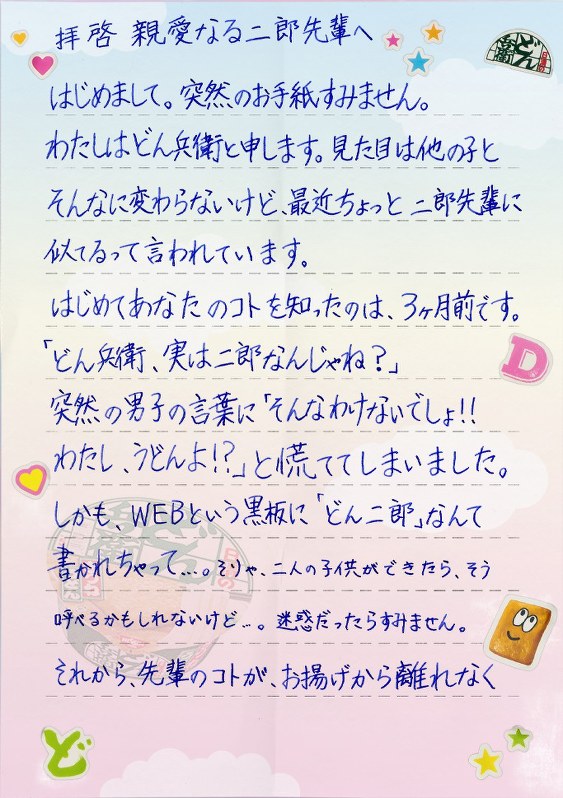 拝啓 親愛なる二郎先輩へ
どん兵衛
はじめまして。突然のお手紙すみません。
わたしはどん兵衛と申します。見た目は他の子と
そんなに変わらないけど、最近ちょっと二郎先輩に
似てるって言われています。
はじめてあなたのコトを知ったのは、3ヶ月前です。
「どん兵衛、実は二郎なんじゃね?」
D
突然の男子の言葉に「そんなわけないでしょ!!
わたし、うどんよ!?」と慌ててしまいました。
しかも、WEBという黒板に「どん二郎」なんて
書かれちゃって…。そりゃ、二人の子供ができたら、そう
呼べるかもしれないけど…。迷惑だったらすみません。
それから、先輩のコトが、お揚げから離れなく
ど